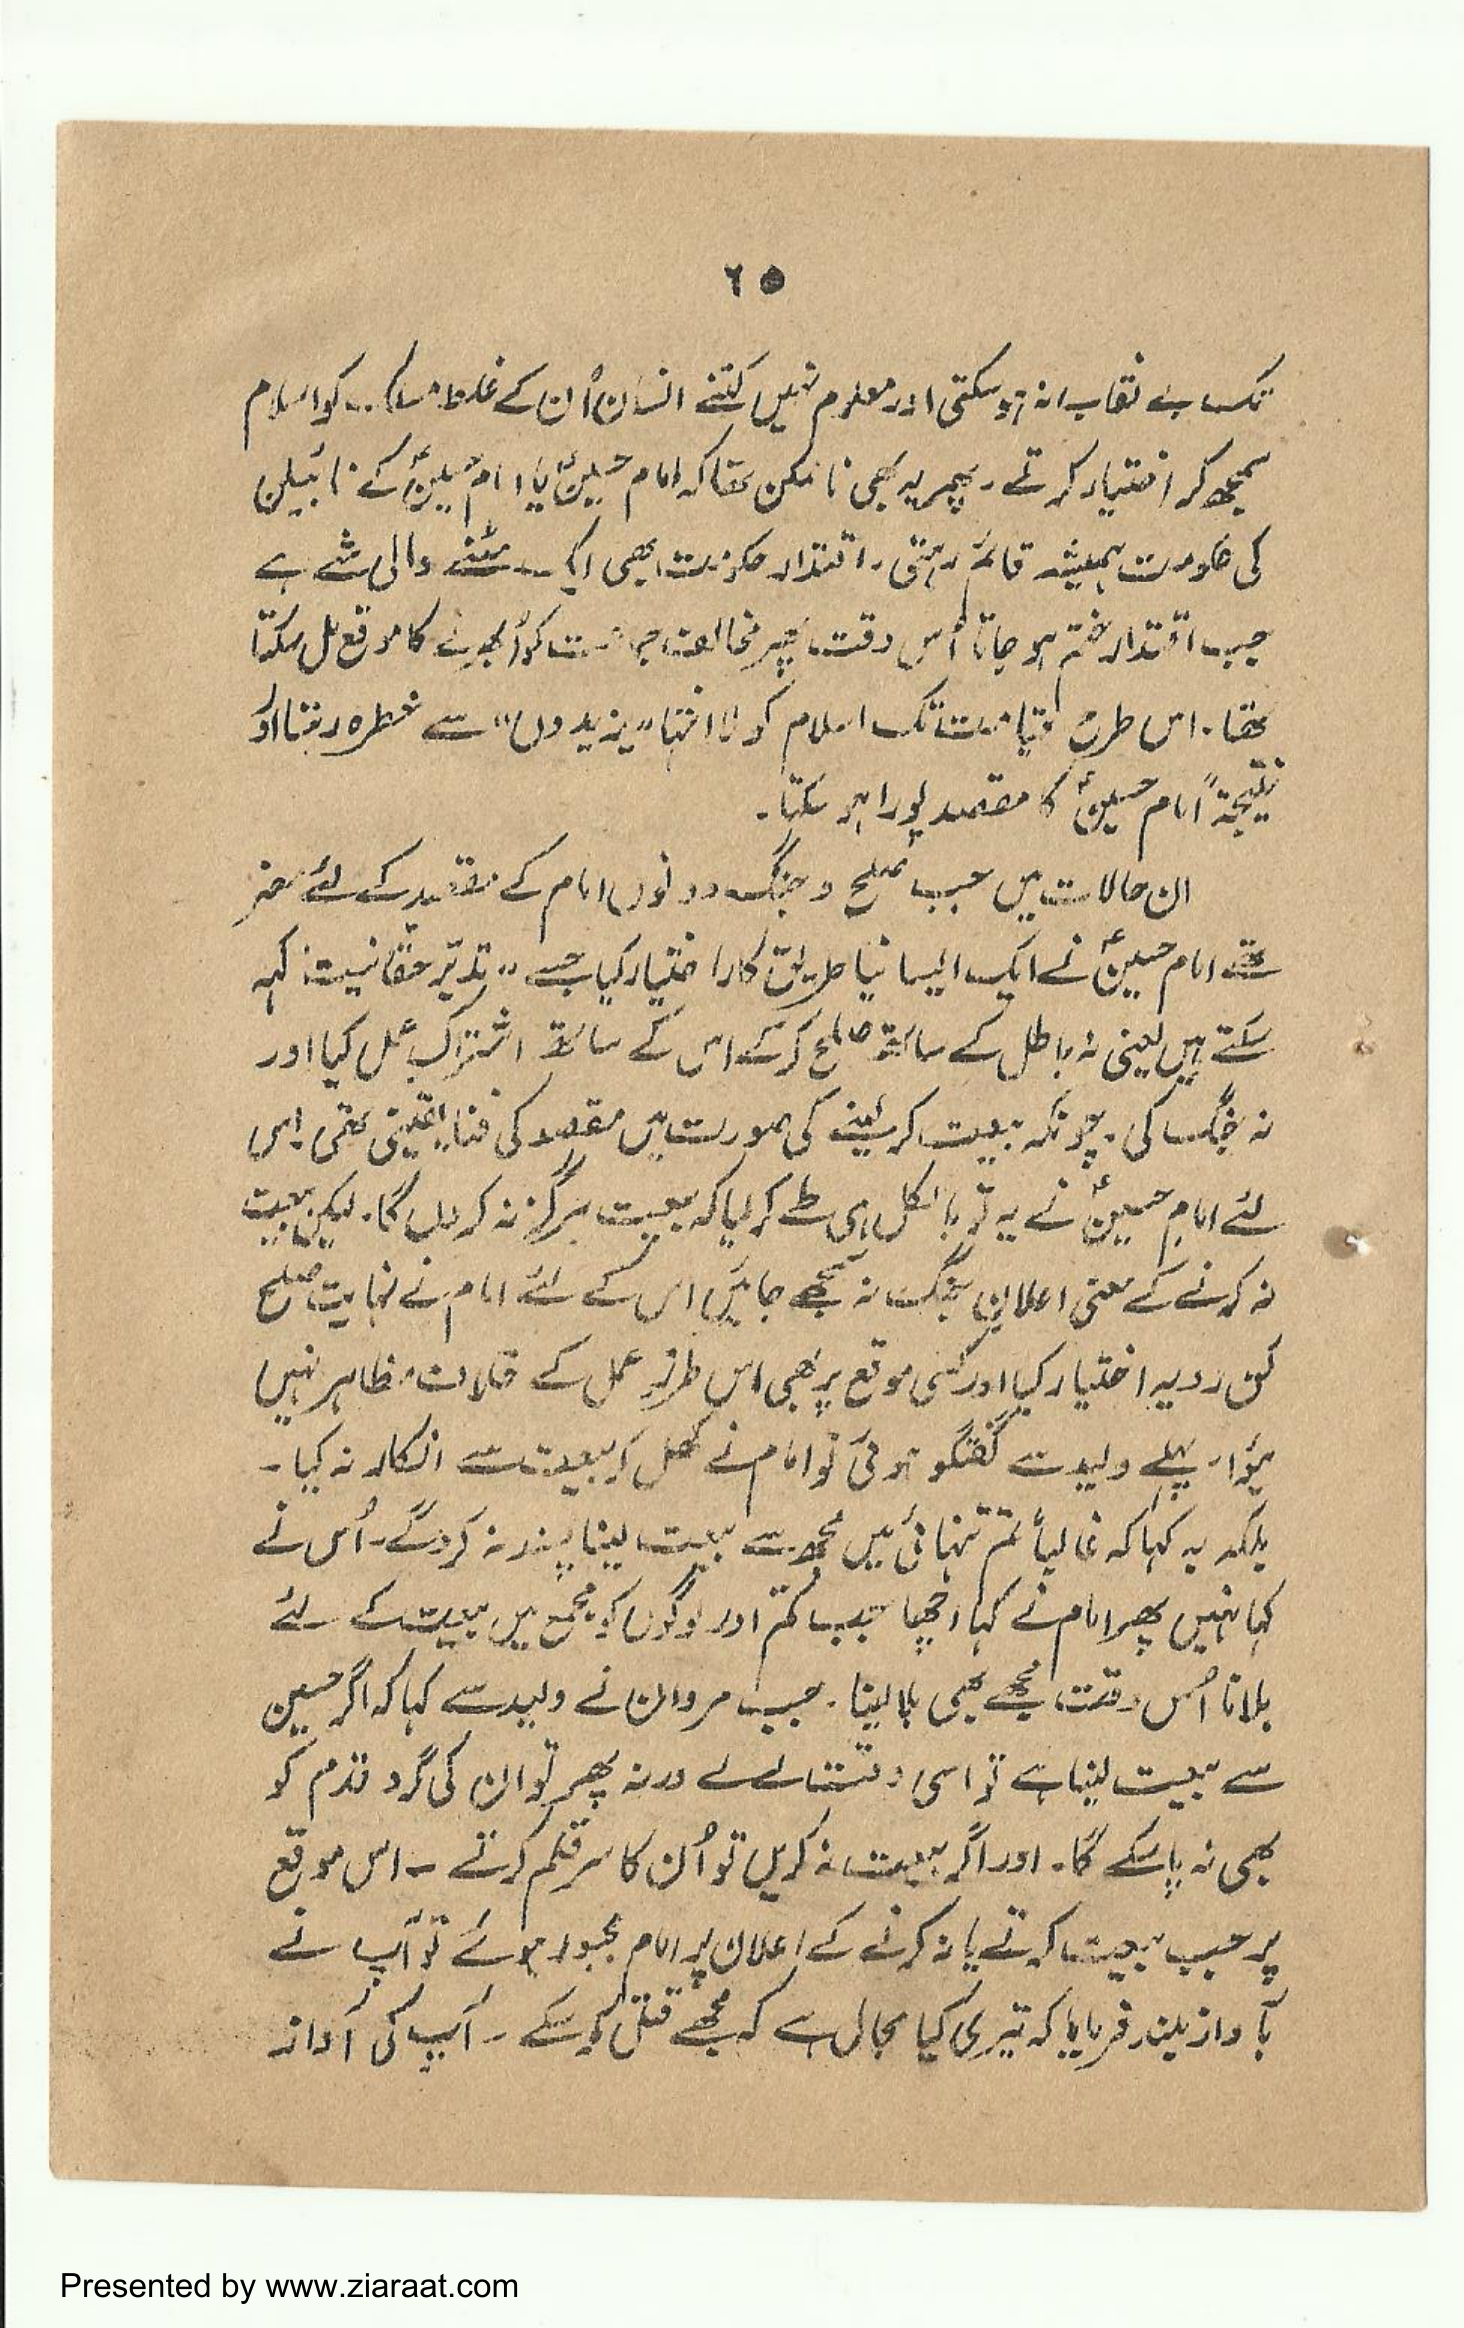 ٦٥
تک بے نقاب نہ ہو سکتی اور معلوم نہیں کتنے انسان اُن کے غلط مسلک کو اسلام
سمجھ کر اختیار کرتے۔ پھر یہ بھی ناممکن تھا کہ امام حسینؑ یا امام حسینؑ کے نائبین
کی حکومت ہمیشہ قائم رہتی۔ اقتدار حکومت بھی ایک مٹنے والی شے ہے
جب اقتدار ختم ہو جاتا اُس وقت پھر مخالف جماعت کو اُبھرنے کا موقع مل سکتا
تھا۔ اس طرح قیامت تک اسلام کو لا انتہا "یزیدوں" سے خطرہ رہتا اور
نتیجۃً امام حسینؑ کا مقصد پورا ہو سکتا۔
ان حالات میں جب صلح و جنگ دونوں امام کے مقصد کے لئے مضر
تھے امام حسینؑ نے ایک ایسا نیا طریق کار اختیار کیا جسے "تدبّر حقانیت" کہہ
سکتے ہیں یعنی نہ باطل کے ساتھ صلح کر کے اس کے ساتھ اشتراکِ عمل کیا اور
نہ جنگ کی۔ چونکہ بیعت کر لینے کی صورت میں مقصد کی فنا یقینی تھی۔ اس
لئے امام حسینؑ نے یہ تو بالکل ہی طے کر لیا کہ بیعت ہرگز نہ کروں گا۔ لیکن بیعت
نہ کرنے کے معنی اعلانِ جنگ نہ سمجھے جائیں اس کے لئے امام نے نہایت صلح
کن رویہ اختیار کیا اور کسی موقع پر بھی اس طرزِ عمل کے خلاف مظاہر نہیں
ہؤا۔ پہلے ولید سے گفتگو ہوئی تو امام نے کھل کر بیعت سے انکار نہ کیا۔
بلکہ یہ کہا کہ غالباً تم تنہائی میں مجھ سے بیعت لینا پسند نہ کرو گے۔ اُس نے
کہا نہیں پھر امام نے کہا اچھا جب تم اور لوگوں کو مجمع میں بیعت کے لئے
بلانا اُس وقت مجھے بھی بلا لینا۔ جب مروان نے ولید سے کہا کہ اگر حسین
سے بیعت لینا ہے تو اسی وقت لے لے ورنہ پھر تو ان کی گرد قدم کو
بھی نہ پا سکے گا۔ اور اگر بیعت نہ کریں تو اُن کا سر قلم کر دے۔ اس موقع
پر جب بیعت کرنے یا نہ کرنے کے اعلان پر امام مجبور ہوئے تو آپ نے
بآواز بلند فرمایا کہ تیری کیا مجال ہے کہ مجھے قتل کر سکے۔ آپ کی آواز
Presented by www.ziaraat.com